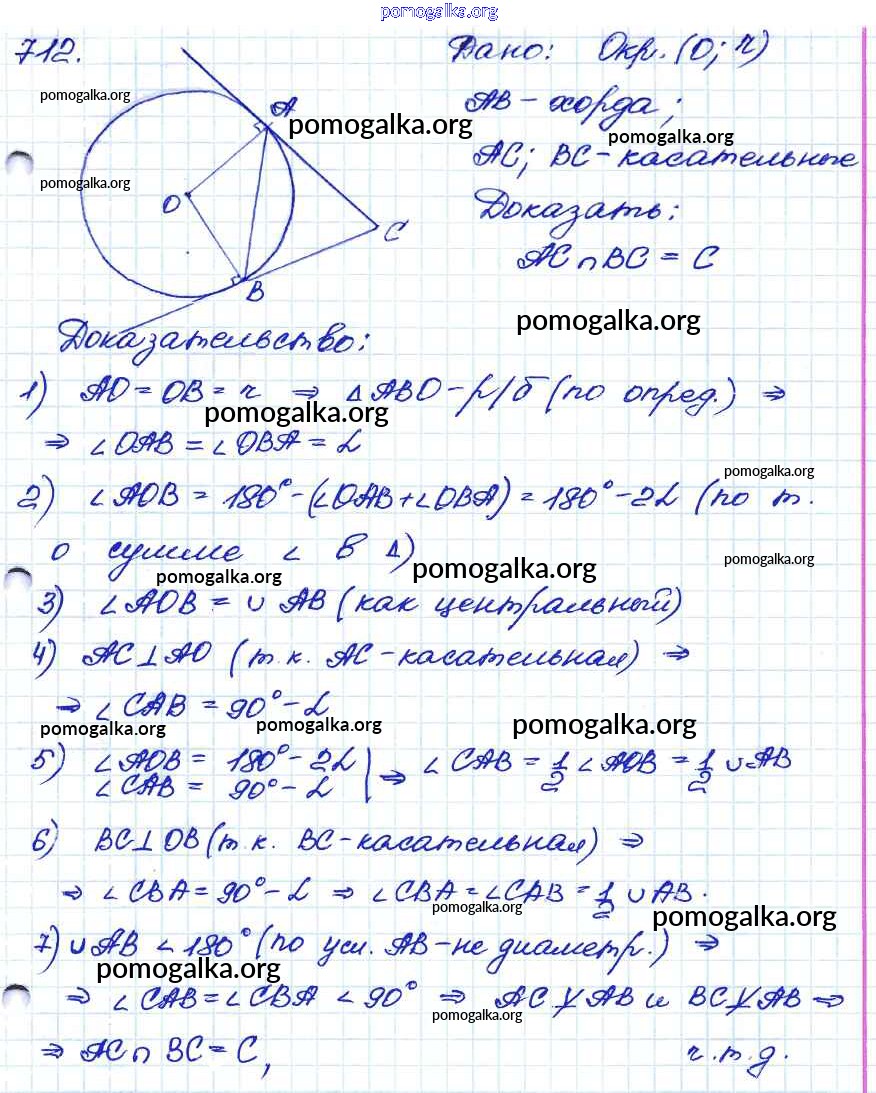 pomogalka.org
712.
Дано: Окр. (О; r)
pomogalka.org
A
AB – хорда;
pomogalka.org
pomogalka.org
AC; BC – касательные
pomogalka.org
O
Доказать:
C
AC ∩ BC = C
B
pomogalka.org
Доказательство:
1) AO = OB = r ⇒ △ABO – р/б (по опред.) ⇒
pomogalka.org
⇒ ∠OAB = ∠OBA = L
pomogalka.org
2) ∠AOB = 180° – (∠OAB + ∠OBA) = 180° – 2L (по т.
о сумме ∠ в △)
pomogalka.org
pomogalka.org
pomogalka.org
3) ∠AOB = ∪ AB (как центральный)
4) AC ⊥ AO (т.к. AC – касательная) ⇒
⇒ ∠CAB = 90° – L
pomogalka.org
pomogalka.org
pomogalka.org
5) ∠AOB = 180° – 2L | ⇒ ∠CAB = 1/2 ∠AOB = 1/2 ∪AB
∠CAB = 90° – L
6) BC ⊥ OB (т.к. BC – касательная) ⇒
⇒ ∠CBA = 90° – L ⇒ ∠CBA = ∠CAB = 1/2 ∪ AB.
pomogalka.org
pomogalka.org
7) ∪AB < 180° (по усл. AB – не диаметр.) ⇒
pomogalka.org
⇒ ∠CAB = ∠CBA < 90° ⇒ AC ⊥̸ AB и BC ⊥̸ AB ⇒
pomogalka.org
⇒ AC ∩ BC = C, ч.т.д.